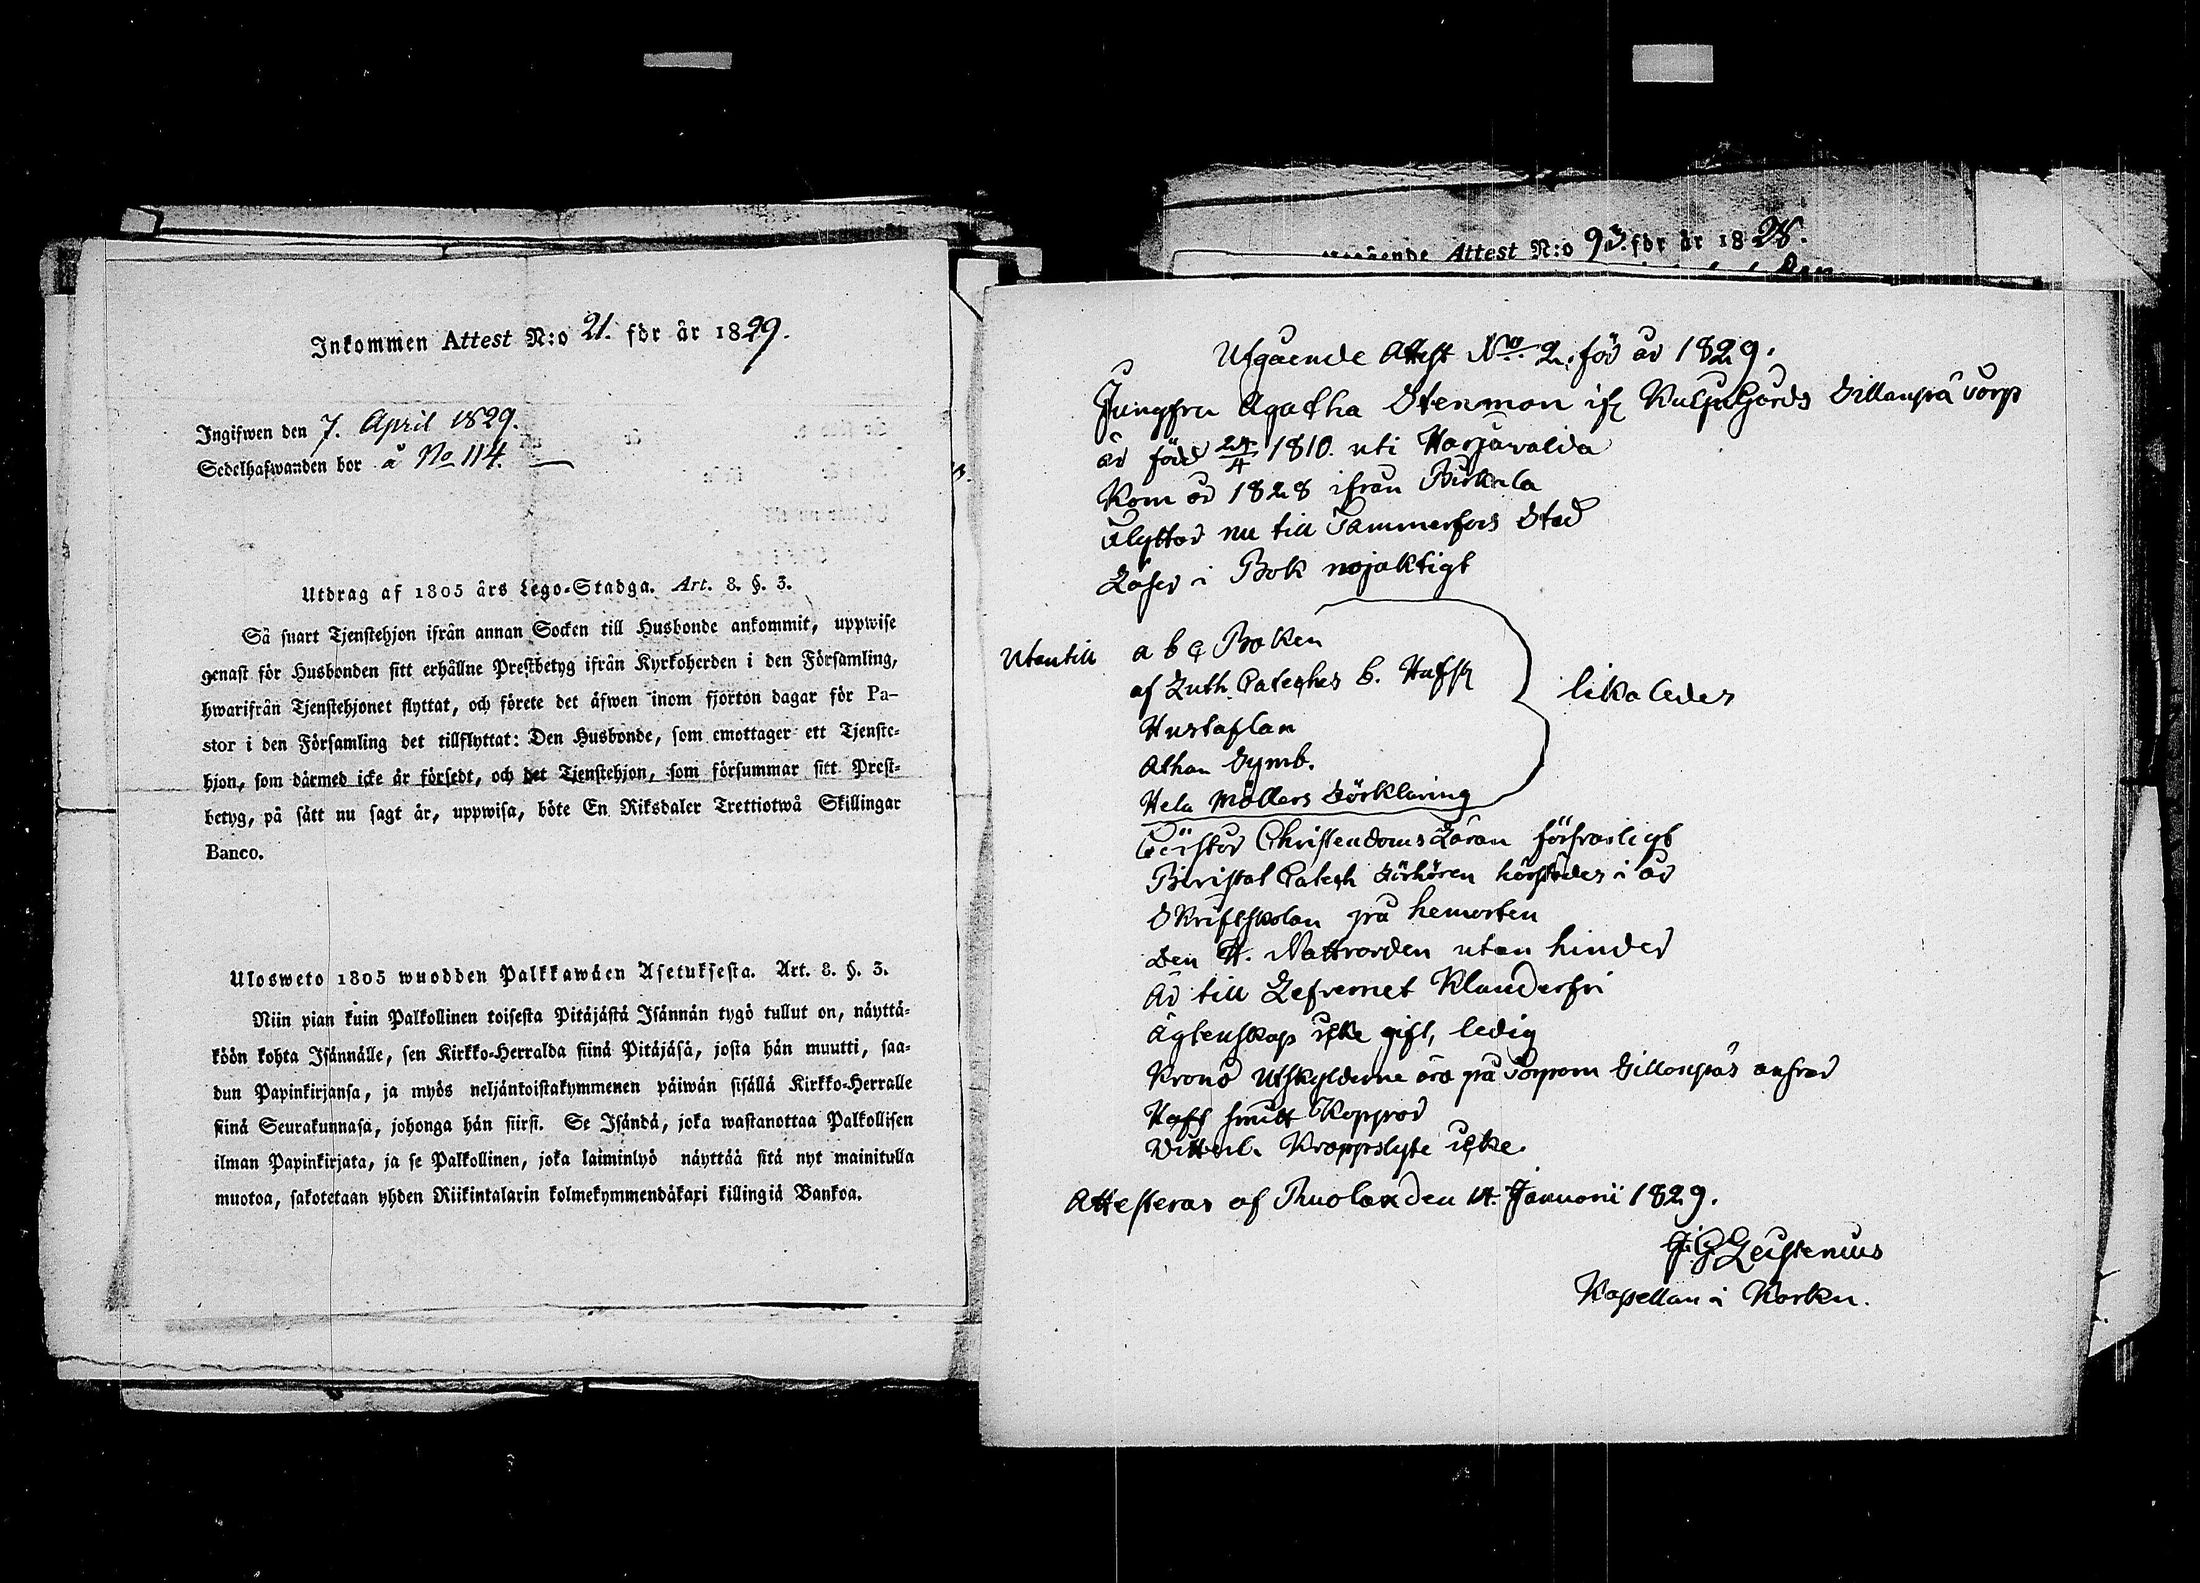 Inkommen Attest N:o 21. för år 1829.
Ingifwen den 7. April 1829.
Sedelhafwanden bor å No 114.
Utdrag af 1805 års Lego-Stadga. Art. 8. §. 3.
Så snart Tjenstehjon ifrån annan Socken till Husbonde ankommit, uppwise
genast för Husbonden sitt erhållne Prestbetyg ifrån Kyrkoherden i den Församling,
hwarifrån Tjenstehjonet flyttat, och förete det äfwen inom fjorton dagar för Pa-
stor i den Församling det tillflyttat: Den Husbonde, som emottager ett Tjenste-
hjon, som därmed icke är försedt, och det Tjenstehjon, som försummar sitt Prest-
betyg, på sätt nu sagt är, uppwisa, böte En Riksdaler Trettiotwå Skillingar
Banco.
Ulosweto 1805 wuodden Palkkawäen Asetuksesta. Art. 8. §. 3.
Niin pian kuin Palkollinen toisesta Pitäjästä Isännän tygö tullut on, näyttä-
köön kohta Isännälle, sen Kirkko-Herralda siinä Pitäjäsä, josta hän muutti, saa-
dun Papinkirjansa, ja myös neljäntoistakymmenen päiwän sisällä Kirkko-Herralle
siinä Seurakunnasa, johonga hän siirsi. Se Isändä, joka wastanottaa Palkollisen
ilman Papinkirjata, ja se Palkollinen, joka laiminlyö näyttää sitä nyt mainitulla
muotoa, sakotetaan yhden Riikintalarin kolmekymmendäkaxi killingiä Bankoa.
Attest N:o 93. för år 1828.
Utgående Attest No. 2. för år 1829.
Jungfru Agatha Stenman Gårds torp
är född 24/4 1810. uti Harjavalda
Kom år 1828 ifrån Birkala
Flyttar nu till Tammerfors Stad
Läser i Bok nöjaktigt
Utantill a b c Boken
af Luth. Cateches b. Hufst
Hustaflan
Athan Symb.
Hela Möllers Förklaring
likaledes
Christendoms Läran försvarligt
Catech Förhören i år
Skriftskolan på hemorten
Den H. Nattvarden utan hinder
Är till Lefvernet Klanderfri
Ägtenskap icke gift, ledig
Krono Utskylderne på
Haft smitt Koppor
Vitterl. Kroppslyte icke.
Attesteras af den 14. Januarii 1829.
Kapellan i Karku.